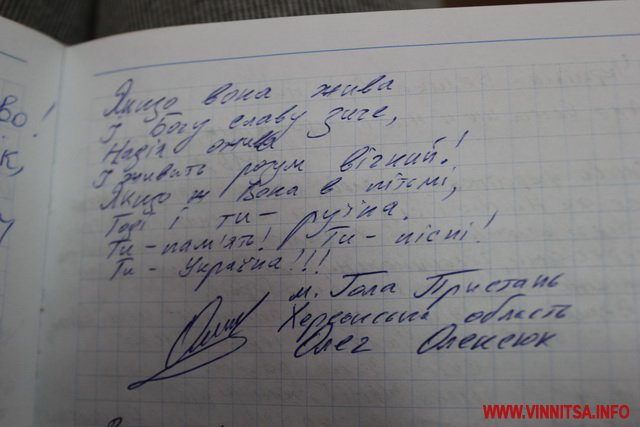 во!
к,
Якщо вона жива
І Богу славу зиче,
Надія ожива
І живить розум вічний!
Якщо ж вона в пітьмі,
Тоді і ти - руїна.
Ти - пам'ять! Ти - пісні!
Ти - Україна!!!
м. Гола Пристань
Херсонська область
Олег Олексюк
WWW.VINNITSA.INFO